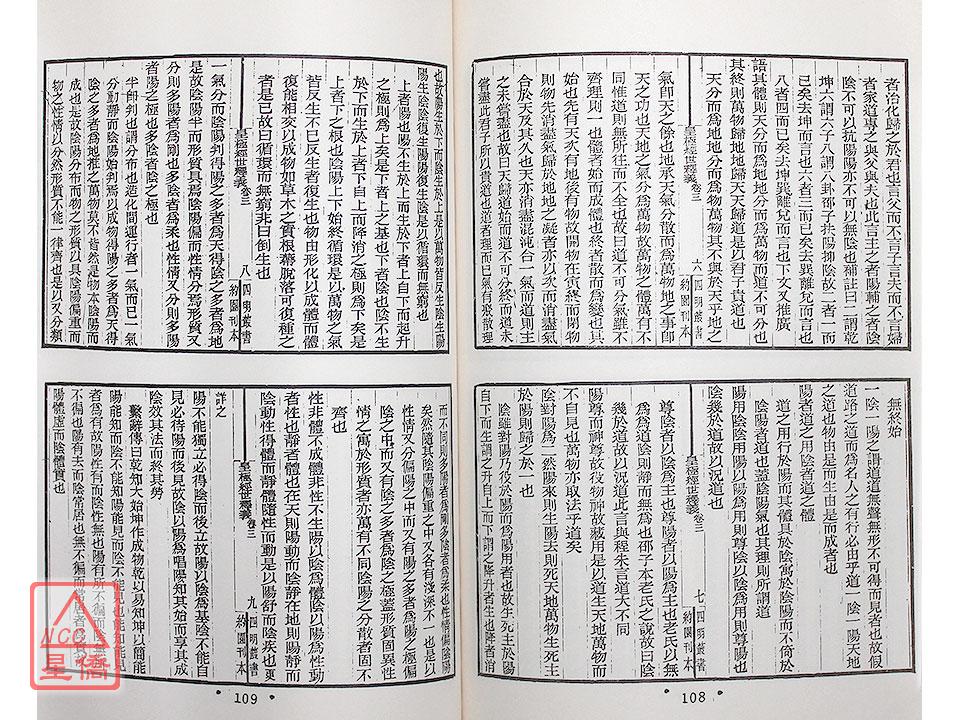 者冶化歸之於君也言父而不言子言夫而不言婦
者家道尊之與父與夫也此言主之者陽輔之者陰
陰不可以抗陽陽亦不可以無陰也補註曰二謂乾
坤六謂六子八謂八卦邵子扶陽抑陰故二者一而
已矣去坤而言也六者三而已矣去巽離兌而言也
八者四而已矣去坤巽離兌而言也下文又推廣
語其體則天分而爲地地分而爲萬物而道不可分也
其終則萬物歸地地歸天天歸道是以君子貴道也
天分而爲地地分而爲萬物其不與於天乎地之
皇極經世釋義 卷三 六 四明叢書 約園刊本
氣卽天之餘也地承天氣分散而爲萬物地之事卽
天之功也天地之氣分爲萬物故萬物之體萬有不
同惟道則無所往而不全也故曰道不可分氣雖不
齊理則一也體者始而成體也終者散而爲變也其
始也先有天次有地後有物故開物在寅終而閉物
則物先消盡氣歸於地地之凝者亦以次而消盡氣
合於天及其久也天亦消盡混沌合一氣而道則主
之未嘗盡也故曰天歸道始而道不可分終而道未
嘗盡此君子所以貴道也道者理而已矣氣有聚散理
無終始
一陰一陽之謂道道無聲無形不可得而見者也故假
道路之道而爲名人之有行必由乎道一陰一陽天地
之道也物由是而生由是而成者也
陽者道之用陰者道之體
道之用行於陽而其體具於陰寓於陰陽而不倚於
陰陽者道也蓋陰陽氣也其理則所謂道
陽用陰陰用陽以陽爲用則尊陰以陰爲用則尊陽也
陰幾於道故以況道也
皇極經世釋義 卷三 七 四明叢書 約園刊本
尊陰者以陰爲主也尊陽者以陽爲主也老氏以無
爲爲道陰則靜而無爲也邵子本老氏之說故曰陰
幾於道故以況道也此言與程朱言道大不同
陽尊而神尊故役物神故藏用是以道生天地萬物而
不自見也萬物亦取法乎道矣
陰對陽爲二然陽來則生陽去則死天地萬物生死主
於陽則歸之於一也
陰雖對陽乃役於陽而爲陽用者也故生死主於陽
自下而上謂之升自上而下謂之降升者生也降者消
108
也故陽生於下而陰生於上是以萬物皆反生陰生
陽陽生陰陰復生陽陽復生陰是以循環而無窮也
上者陽也陽不生於上而生於下者上自下而起升
之極則爲上矣是下者上之基也下者陰也陰不生
於下而生於上者下自上而降消之極則爲下矣是
上者下之根也陰陽上下始終循環是以萬物之氣
皆反生不已反生者復生也物由形化以成體而體
復能相交以成物如草木之實根蔕脫落可復種之
者是已故曰循環而無窮非曰倒生也
皇極經世釋義 卷三 八 四明叢書 約園刊本
一氣分而陰陽判得陽之多者爲天得陰之多者爲地
是故陰陽半而形質具焉陰陽偏而性情分焉形質又
分則多陽者爲剛也多陰者爲柔也性情又分則多陽
者陽之極也多陰者陰之極也
半卽判也謂分布也造化間運行者一氣而已一氣
分動靜而陰陽始判焉以成物得陽之多者爲天得
陰之多者爲地推之萬物莫不皆然是物本陰陽而
成也是故陰陽分布而物之形質以具陰陽偏重而
物之性情以分然形質不能一律齊也是以又分類
而不同則多陽者爲剛多陰者爲柔也性情偏陰陽
矣然隨其陰陽偏重之中又各有淺深不一也是以
性情又分偏陽之中而又有陽之多者爲陽之極偏
陰之中而又有陰之多者爲陰之極蓋形質異性
情之寓於形質者亦萬有不同陰陽之分散者固不
齊也
性非體不成體非性不生陽以陰爲體陰以陽爲性動
者性也靜者體也在天則陽動而陰靜在地則陽靜而
陰動性得體而靜體隨性而動是以陽舒而陰疾也更
皇極經世釋義 卷三 九 四明叢書 約園刊本
詳之
陽不能獨立必得陰而後立故陽以陰爲基陰不能自
見必待陽而後見故陰以陽爲唱陽知其始而享其成
陰效其法而終其勞
繫辭傳曰乾知大始坤作成物乾以易知坤以簡能
陽能知而陰不能知陽能見而陰不能見也能知能見
者爲有故陽性有而陰性無也陽有所不徧而陰無所
不徧也陽有去而陰常居也無不徧而常居者爲實故
陽體虛而陰體實也
109
NCC
星僑